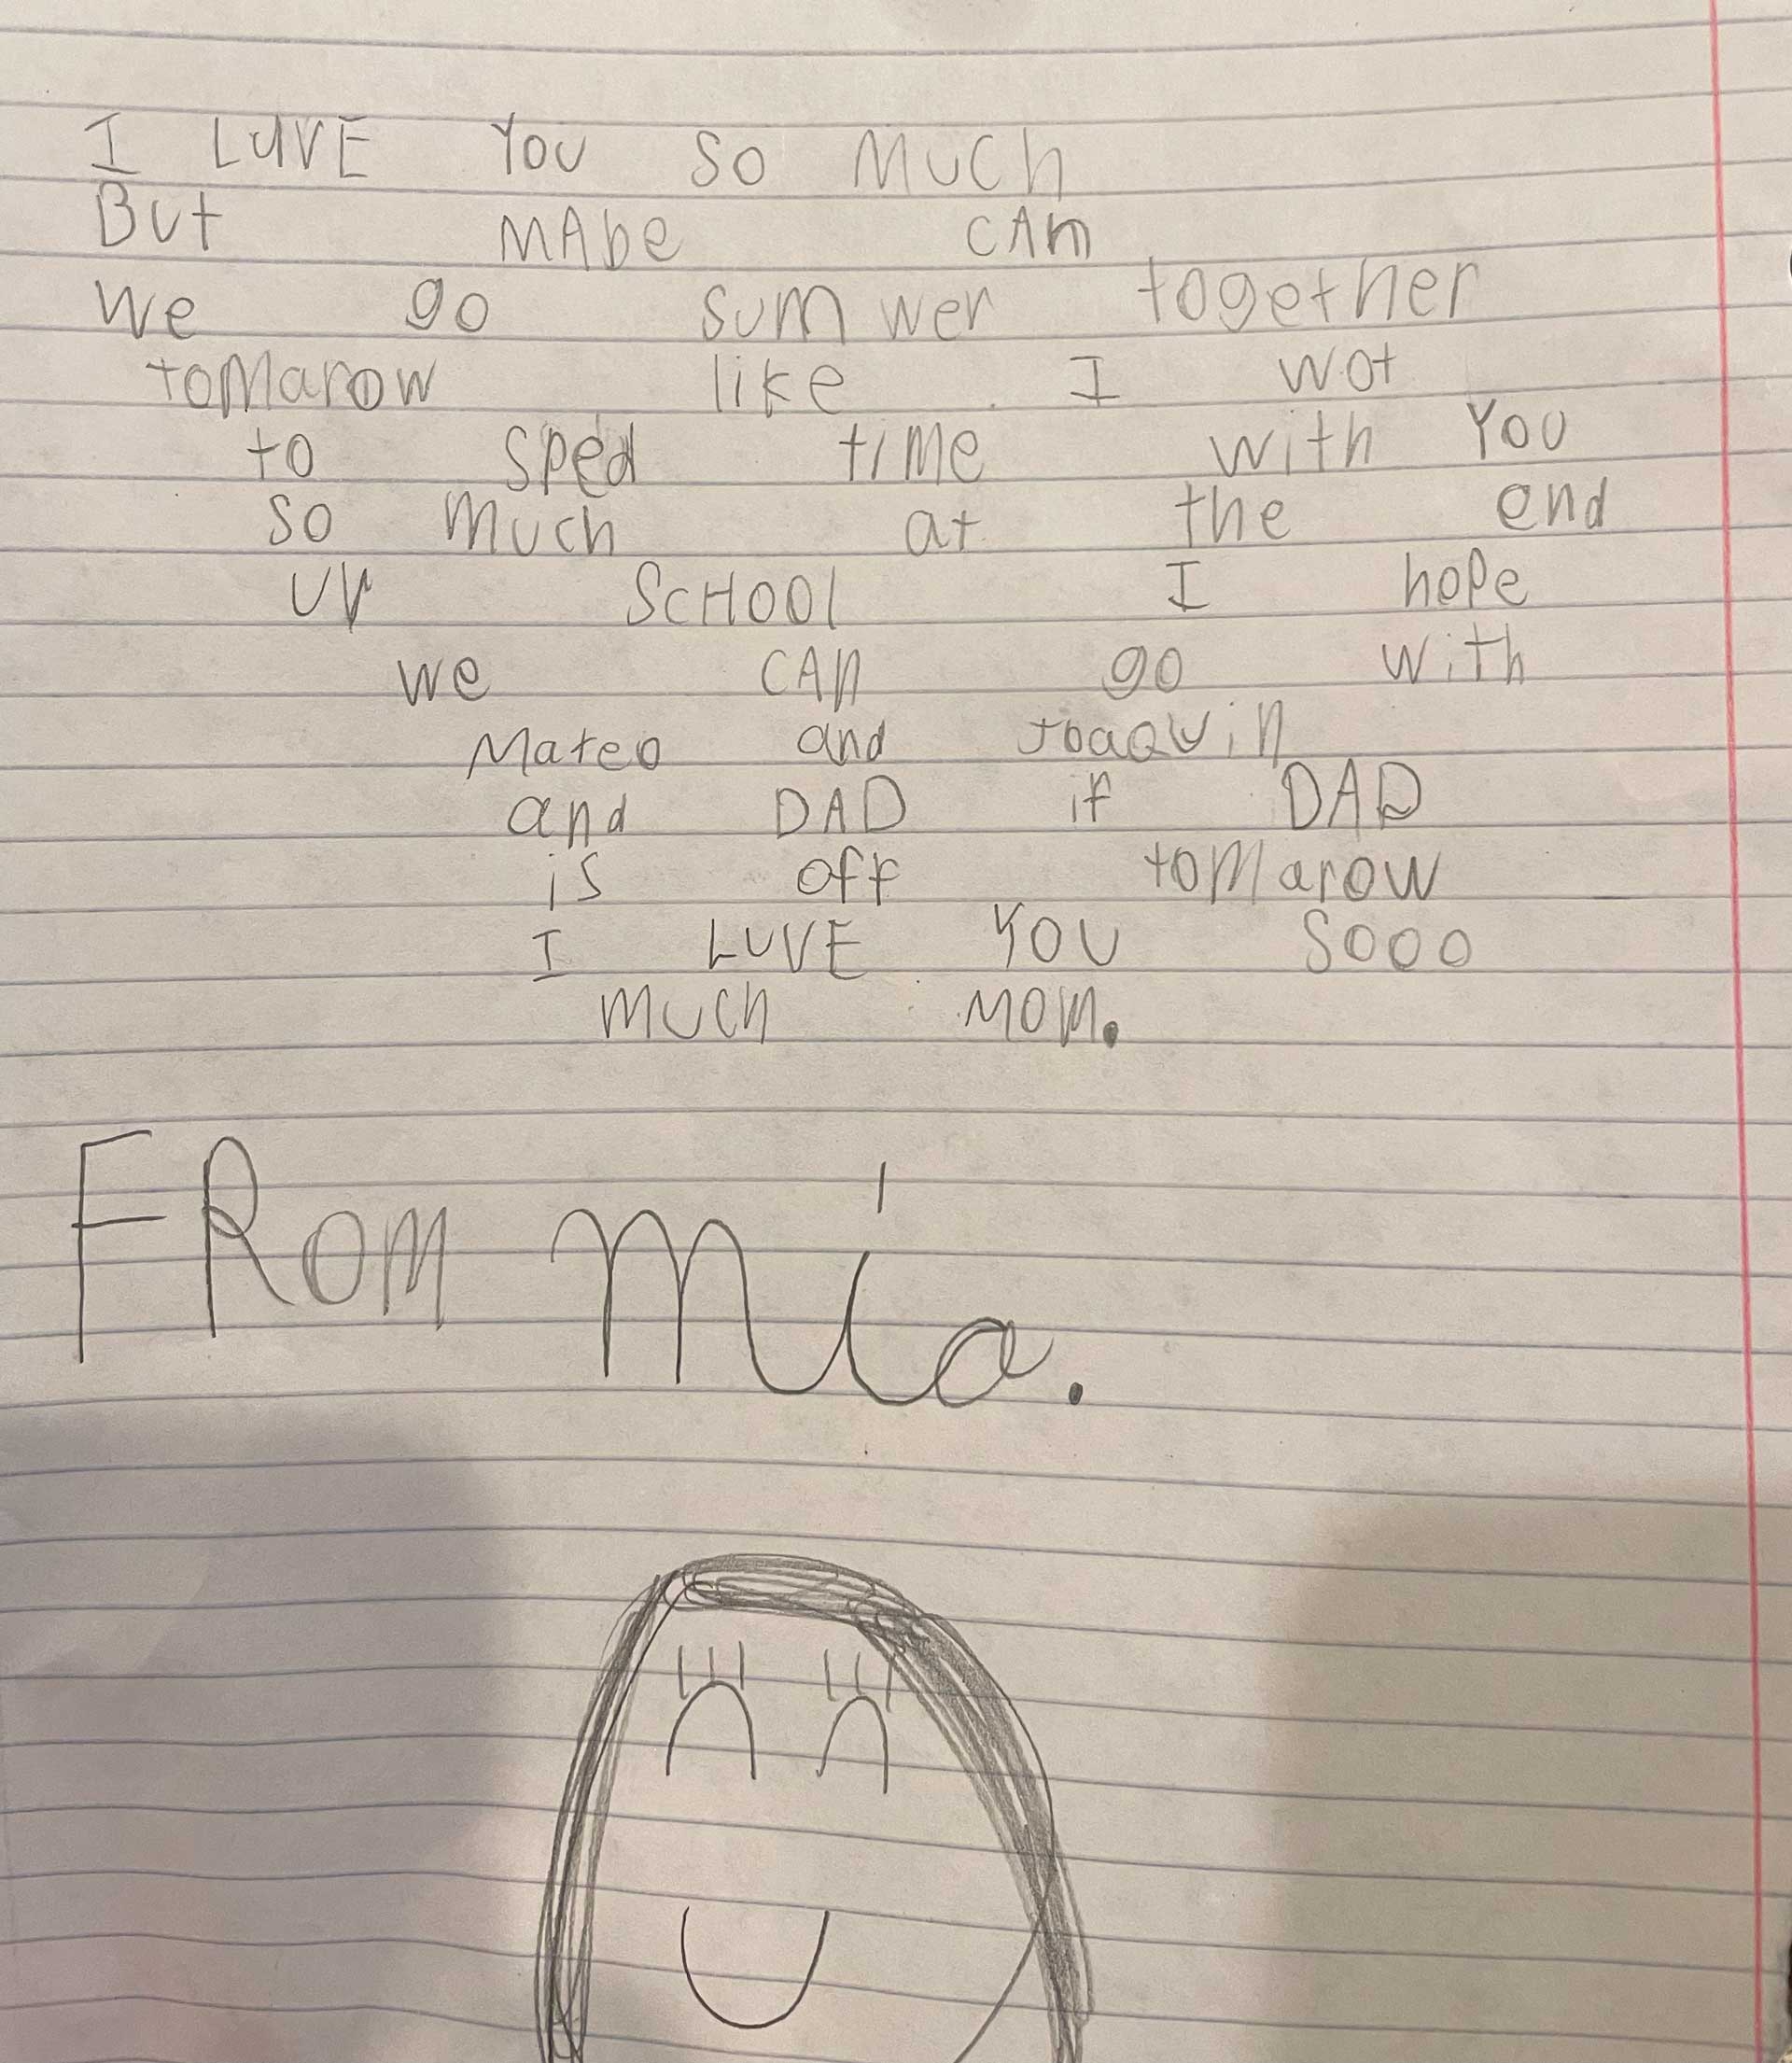 I LUVE YOU SO MUCH
BUt MAbe CAn
We go sum wer together
toMarow like I wot
to sped tiMe with YOU
so Much at the end
UV ScHOOl I hope
we CAn go with
Mateo and Joaquin
and DAD if DAD
is off toMarow
I LUVE YOU Sooo
Much MOM.
FRoM Mía.